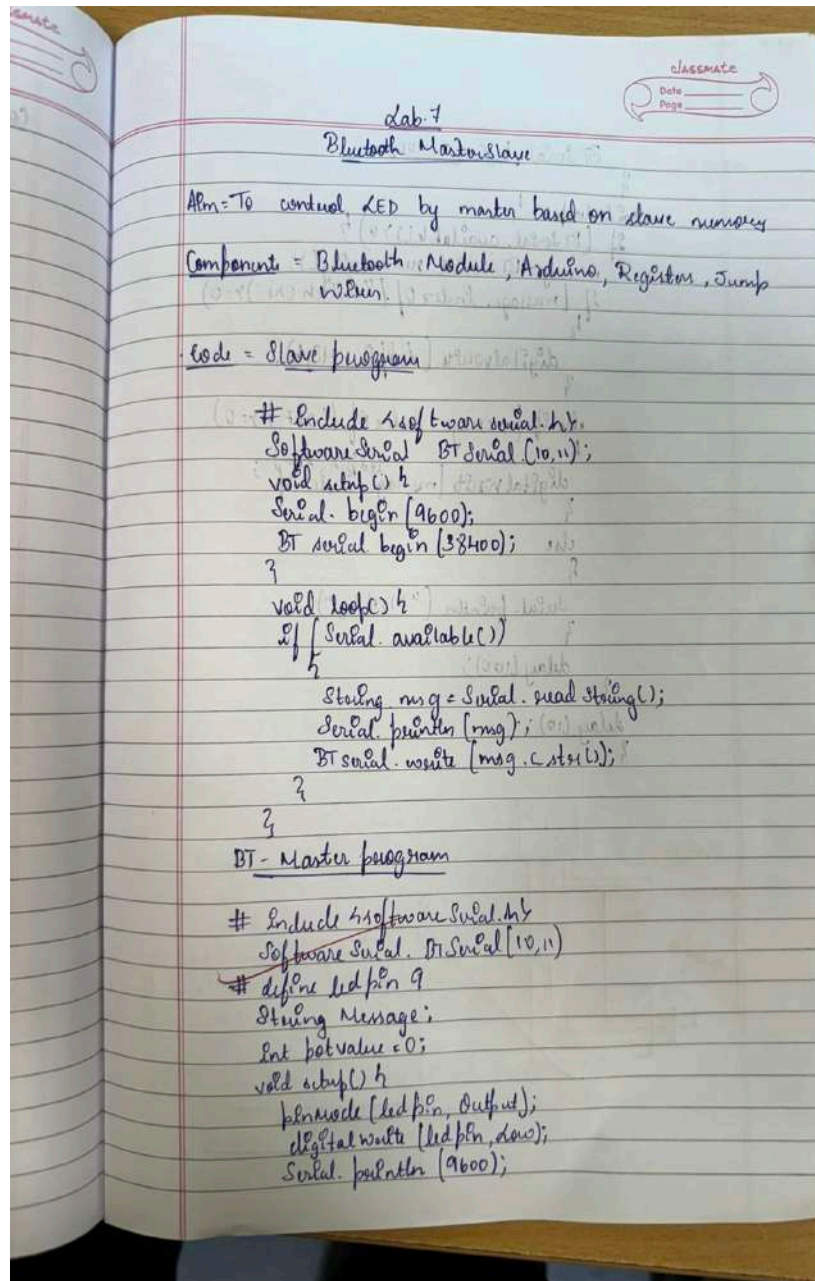 classmate
classmate
Date
Page
Lab-7
Bluetooth Master Slave
Aim = To control LED by master based on slave memory
Components = Bluetooth Module, Arduino, Registors, Jump
wires.
Code = Slave program
# include <software serial.h>
Software Serial BT Serial (10,11);
void setup() {
Serial. begin (9600);
BT serial begin (38400);
}
void loop() {
if (Serial. available())
{
String msg = Serial. read string();
Serial. println (msg);
BT serial. write (msg. c str());
}
}
BT - Master program
# include <software Serial.h>
Software Serial. BT Serial (10,11)
# define led pin 9
String Message;
int potvalue = 0;
void setup() {
pinMode (led pin, Output);
digital write (led pin, Low);
Serial. println (9600);